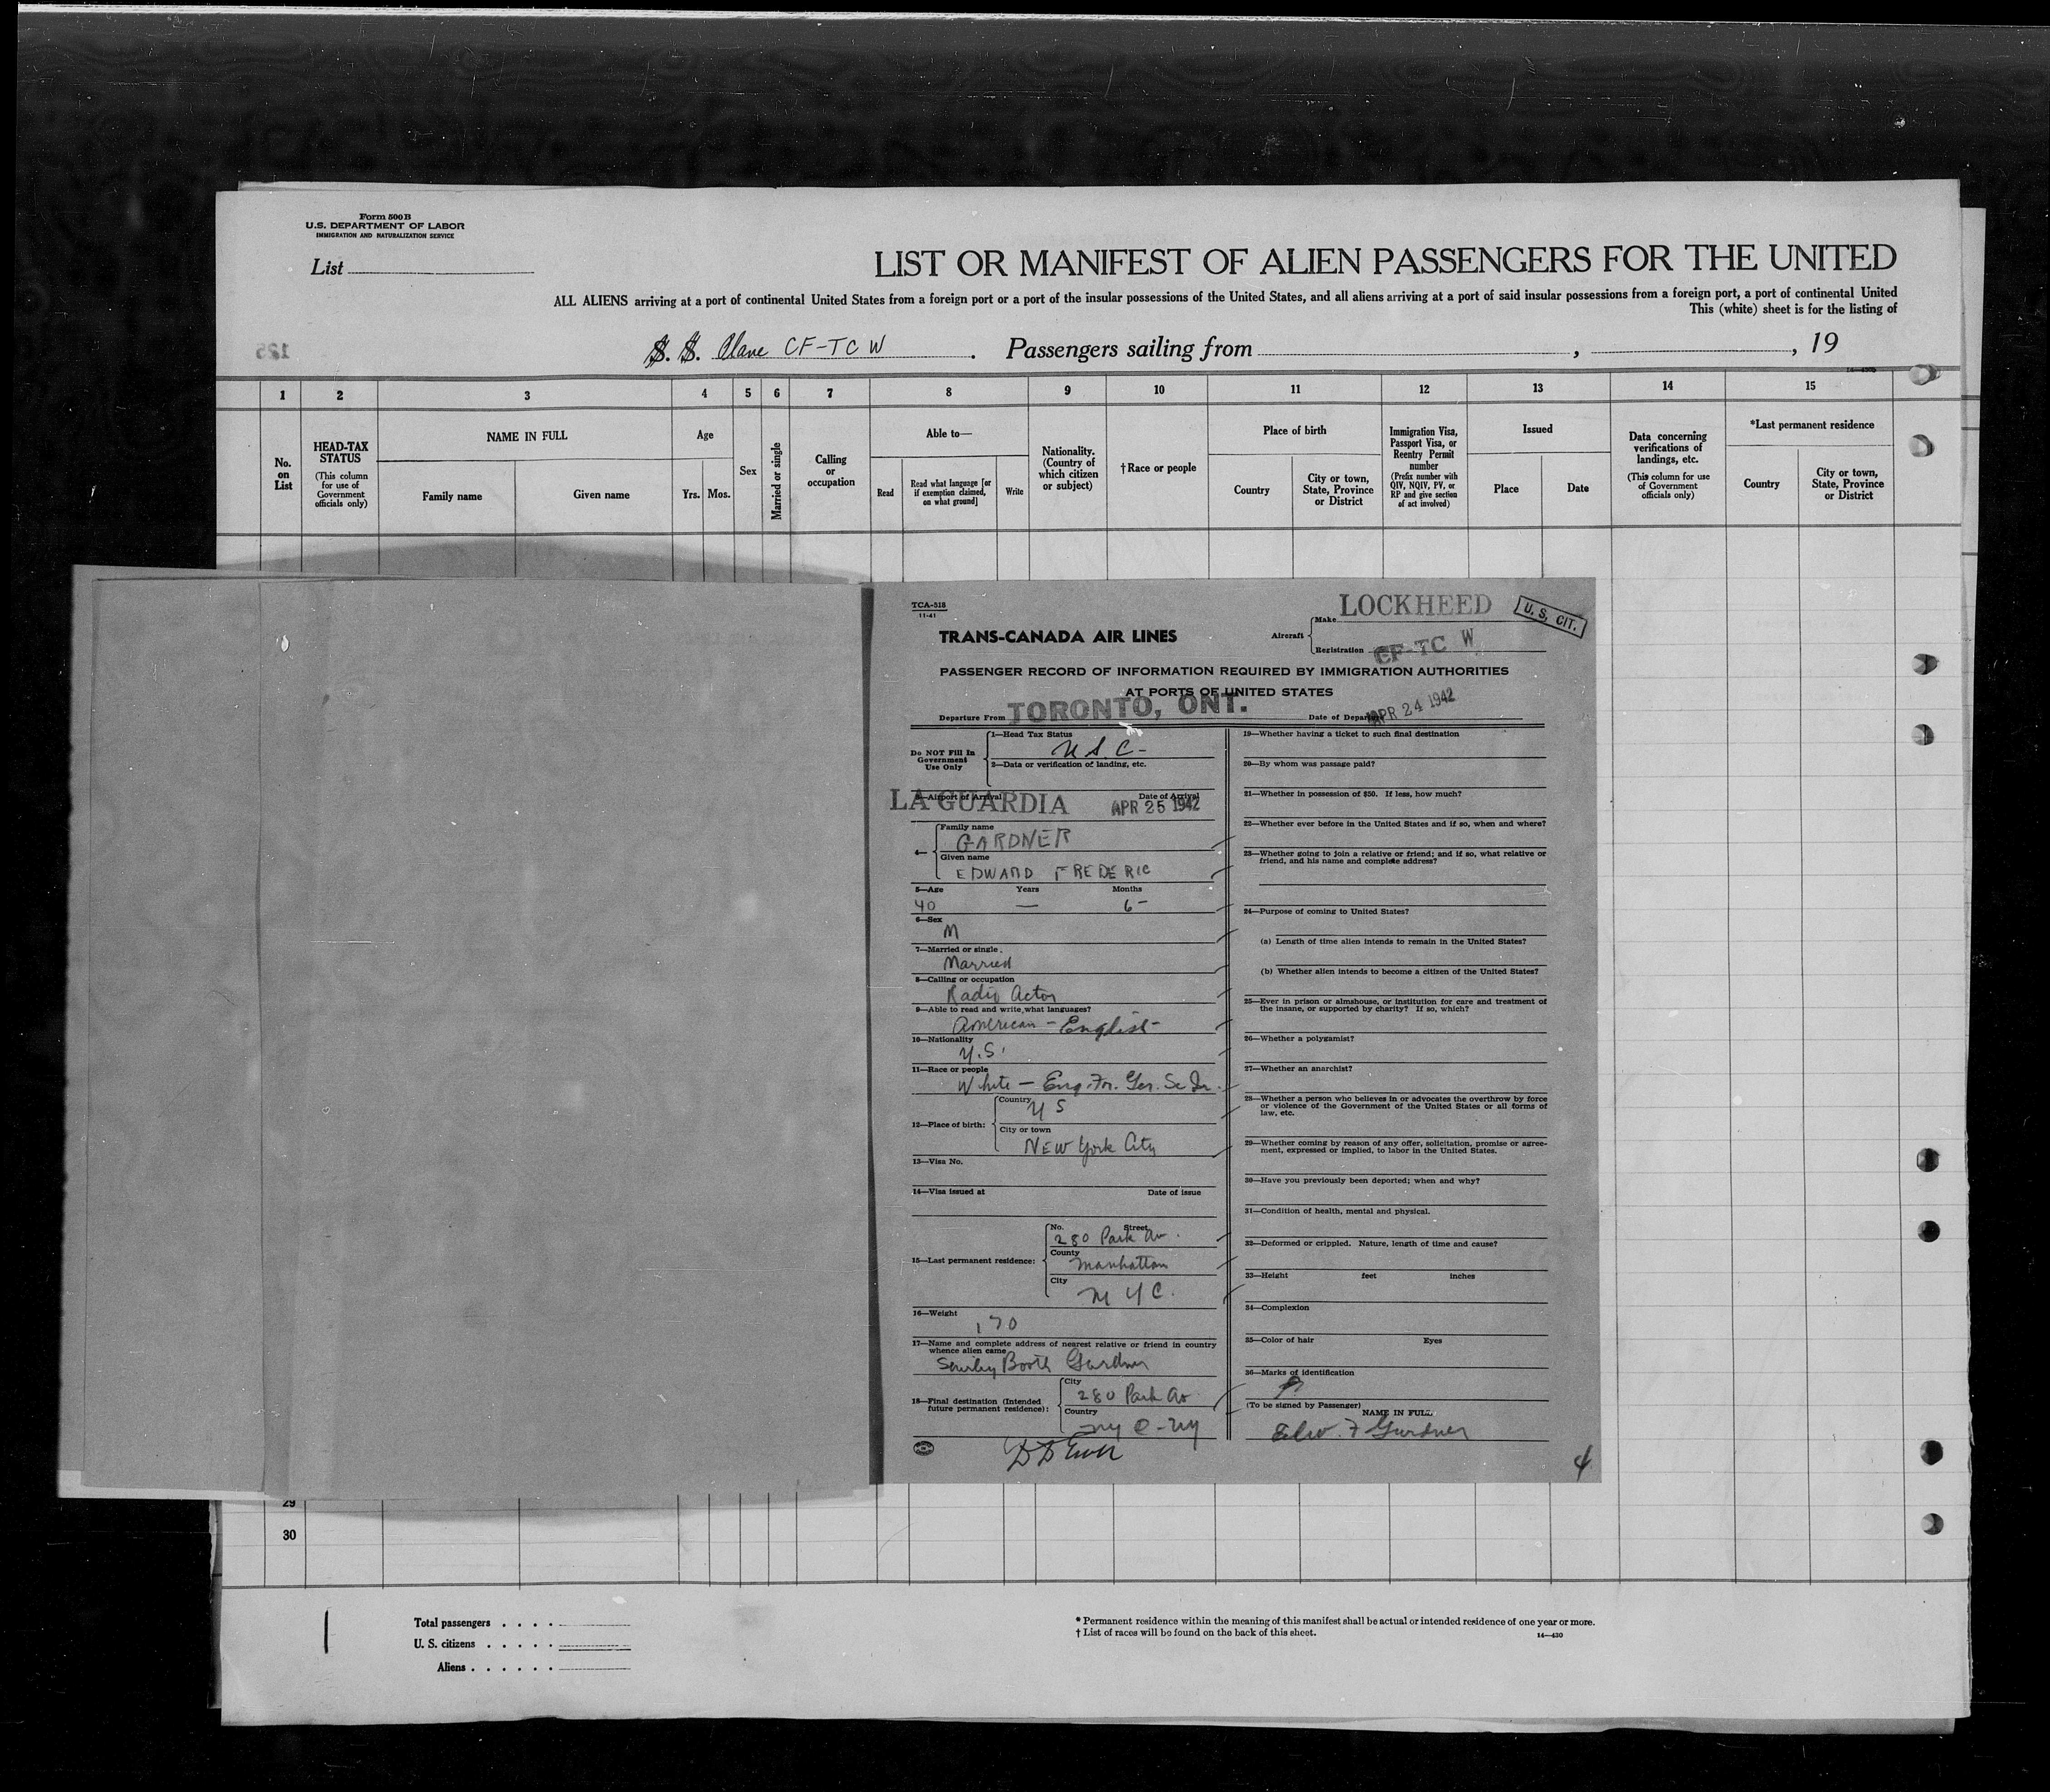 Form 500 B
U.S. DEPARTMENT OF LABOR
IMMIGRATION AND NATURALIZATION SERVICE
List
LIST OR MANIFEST OF ALIEN PASSENGERS FOR THE UNITED
ALL ALIENS arriving at a port of continental United States from a foreign port or a port of the insular possessions of the United States, and all aliens arriving at a port of said insular possessions from a foreign port, a port of continental United
This (white) sheet is for the listing of
125
S. S. Plane CF-TCW. Passengers sailing from , , 19
1 2 3 4 5 6 7 8 9 10 11 12 13 14 15
No. on List
HEAD-TAX STATUS
(This column for use of Government officials only)
NAME IN FULL
Family name Given name
Age
Yrs. Mos.
Sex
Married or single
Calling or occupation
Able to—
Read
Read what language [or if exemption claimed, on what ground]
Write
Nationality. (Country of which citizen or subject)
†Race or people
Place of birth
Country
City or town, State, Province or District
Immigration Visa, Passport Visa, or Reentry Permit number
(Prefix number with QIV, NQIV, PV, or RP and give section of act involved)
Issued
Place Date
Data concerning verifications of landings, etc.
(This column for use of Government officials only)
*Last permanent residence
Country
City or town, State, Province or District
TCA-518
11-41
TRANS-CANADA AIR LINES
Aircraft
Make LOCKHEED
Registration CF-TC W
U. S. CIT.
PASSENGER RECORD OF INFORMATION REQUIRED BY IMMIGRATION AUTHORITIES
AT PORTS OF UNITED STATES
Departure From TORONTO, ONT. Date of Departure APR 24 1942
Do NOT Fill In
Government
Use Only
1—Head Tax Status
U S. C-
2—Data or verification of landing, etc.
3—Airport of Arrival Date of Arrival
LA GUARDIA APR 25 1942
4—
Family name
GARDNER
Given name
EDWARD FREDERIC
5—Age Years Months
40 — 6-
6—Sex
M
7—Married or single
Married
8—Calling or occupation
Radio Actor
9—Able to read and write, what languages?
American - English-
10—Nationality
U.S.
11—Race or people
White — Eng. Fr. Ger. Sc Ir.
12—Place of birth:
Country
U S
City or town
NEW York City
13—Visa No.
14—Visa issued at Date of issue
15—Last permanent residence:
No. Street
280 Park Av.
County
Manhattan
City
N Y C.
16—Weight
170
17—Name and complete address of nearest relative or friend in country
whence alien came
Shirley Booth Gardner
18—Final destination (Intended
future permanent residence):
City
280 Park Av
Country
NY C - NY
19—Whether having a ticket to such final destination
20—By whom was passage paid?
21—Whether in possession of $50. If less, how much?
22—Whether ever before in the United States and if so, when and where?
23—Whether going to join a relative or friend; and if so, what relative or
friend, and his name and complete address?
24—Purpose of coming to United States?
(a) Length of time alien intends to remain in the United States?
(b) Whether alien intends to become a citizen of the United States?
25—Ever in prison or almshouse, or institution for care and treatment of
the insane, or supported by charity? If so, which?
26—Whether a polygamist?
27—Whether an anarchist?
28—Whether a person who believes in or advocates the overthrow by force
or violence of the Government of the United States or all forms of
law, etc.
29—Whether coming by reason of any offer, solicitation, promise or agree-
ment, expressed or implied, to labor in the United States.
30—Have you previously been deported; when and why?
31—Condition of health, mental and physical.
32—Deformed or crippled. Nature, length of time and cause?
33—Height feet inches
34—Complexion
35—Color of hair Eyes
36—Marks of identification
(To be signed by Passenger)
NAME IN FULL
Edw. F Gardner
4
29
30
Total passengers
U. S. citizens
Aliens
* Permanent residence within the meaning of this manifest shall be actual or intended residence of one year or more.
† List of races will be found on the back of this sheet.
14—430